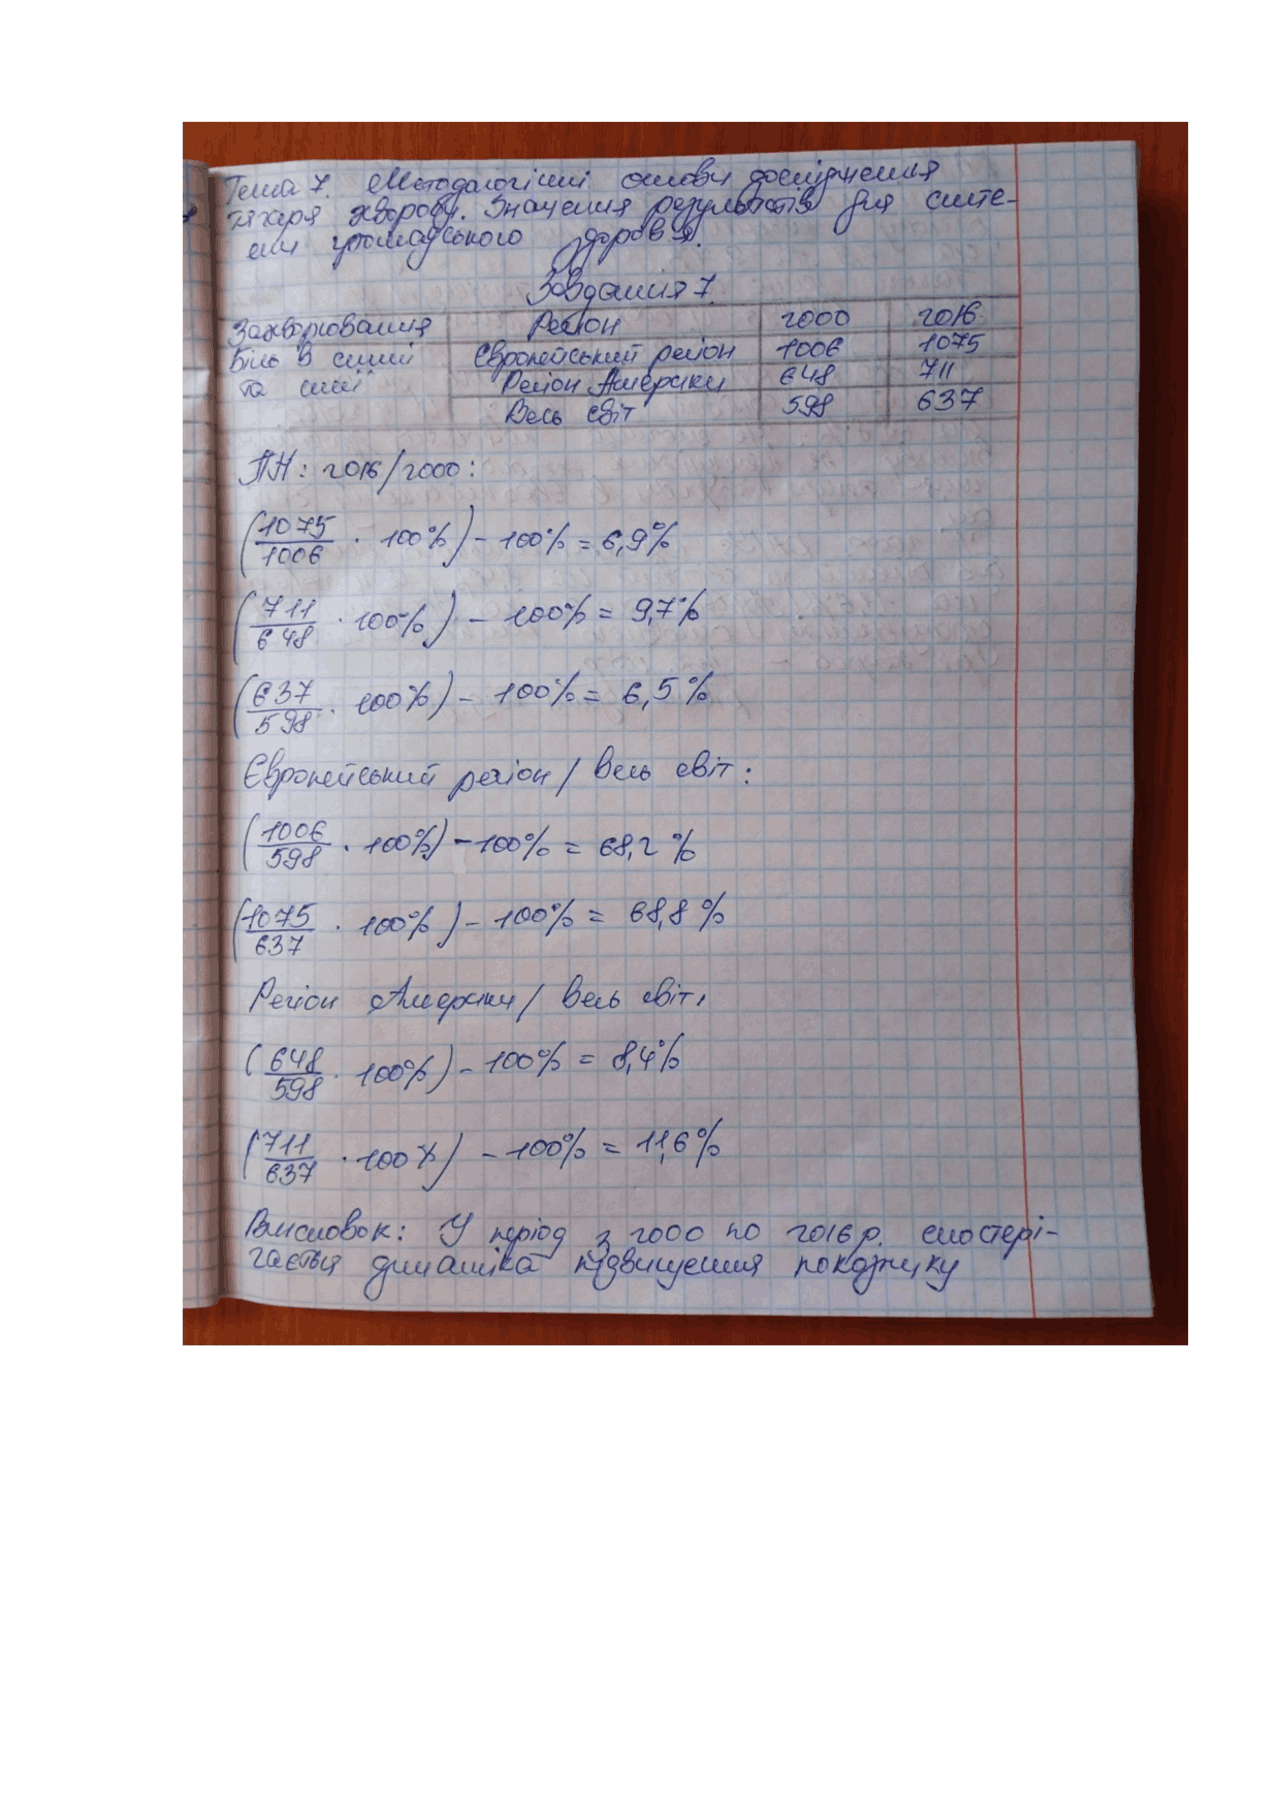 Тема 7. Методологічні основи дослідження
тягаря хвороби. Значення результатів для систе-
ми громадського здоров'я.
Завдання 7.
Захворювання Регіон 2000 2016
Біль в спині Європейський регіон 1006 1075
та шиї Регіон Америки 648 711
Весь світ 598 637
ПН: 2016/2000:
(1075/1006 · 100%) - 100% = 6,9%
(711/648 · 100%) - 100% = 9,7%
(637/598 · 100%) - 100% = 6,5%
Європейський регіон / Весь світ:
(1006/598 · 100%) - 100% = 68,2%
(1075/637 · 100%) - 100% = 68,8%
Регіон Америки / Весь світ:
(648/598 · 100%) - 100% = 8,4%
(711/637 · 100%) - 100% = 11,6%
Висновок: У період з 2000 по 2016р. спостері-
гається динаміка підвищення показнику